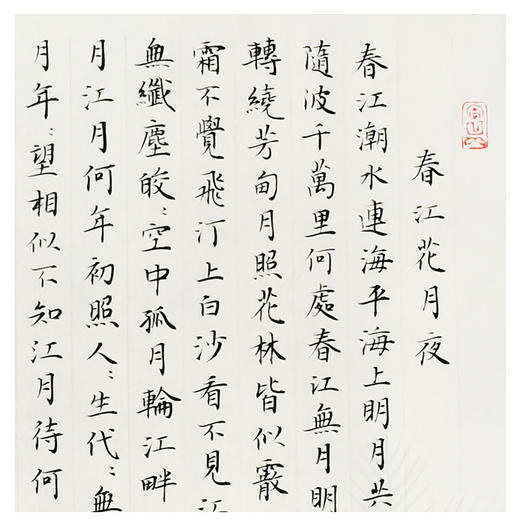 春江花月夜
春江潮水連海平海上明月共
隨波千萬里何處春江無月明
轉繞芳甸月照花林皆似霰
霜不覺飛汀上白沙看不見江
無纖塵皎〻空中孤月輪江畔
月江月何年初照人〻生代〻無
月年〻望相似不知江月待何